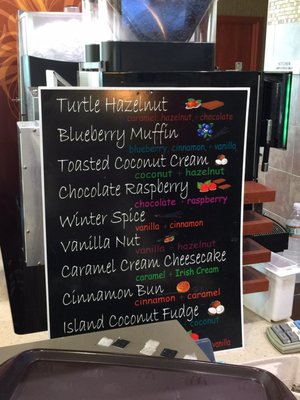 Turtle Hazelnut
caramel, hazelnut, + chocolate
Blueberry Muffin
blueberry, cinnamon, + vanilla
Toasted Coconut Cream
coconut + hazelnut
Chocolate Raspberry
chocolate + raspberry
Winter Spice
vanilla + cinnamon
Vanilla Nut
vanilla + hazelnut
Caramel Cream Cheesecake
caramel + Irish Cream
Cinnamon Bun
cinnamon + caramel
Island Coconut Fudge
coconut
vanilla